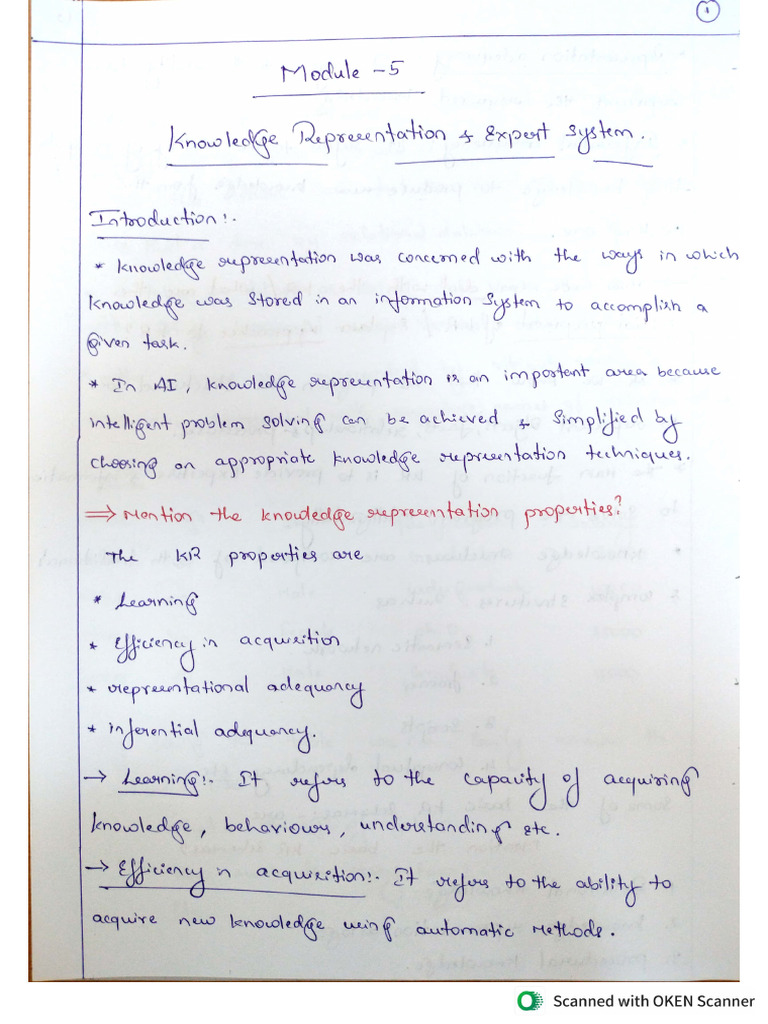 1
Module - 5
Knowledge Representation & Expert System.
Introduction:-
* Knowledge representation was concerned with the ways in which
knowledge was stored in an information system to accomplish a
given task.
* In AI, knowledge representation is an important area because
intelligent problem solving can be achieved & simplified by
choosing an appropriate knowledge representation techniques.
⇒ Mention the knowledge representation properties?
The KR properties are
* Learning
* Efficiency in acquisition
* representational adequancy
* inferential adequancy.
→ Learning:- It refers to the capacity of acquiring
knowledge, behaviours, understanding etc.
→ Efficiency in acquisition:- It refers to the ability to
acquire new knowledge using automatic methods.
Scanned with OKEN Scanner